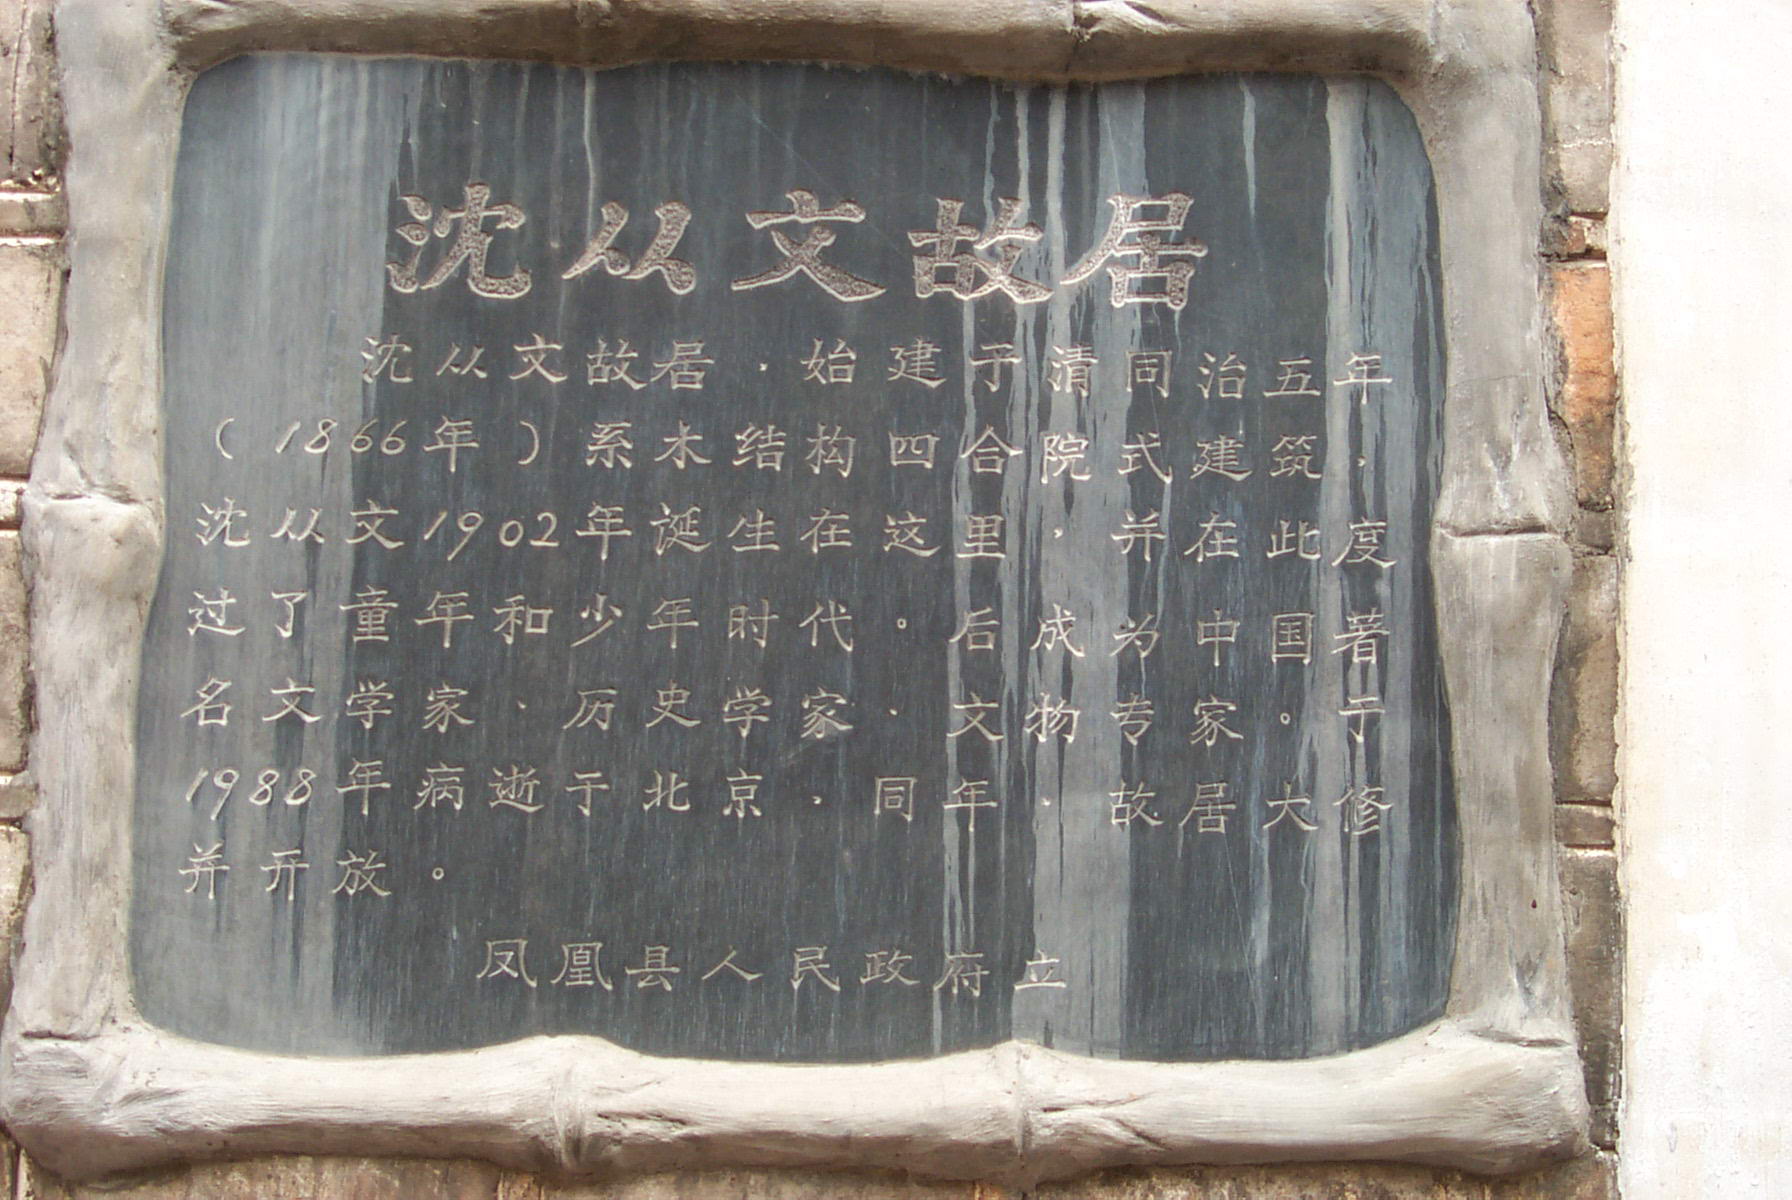 沈从文故居
沈从文故居，始建于清同治五年
（1866年）系木结构四合院式建筑，
沈从文1902年诞生在这里，并在此度
过了童年和少年时代。后成为中国著
名文学家、历史学家、文物专家。于
1988年病逝于北京，同年，故居大修
并开放。
凤凰县人民政府立